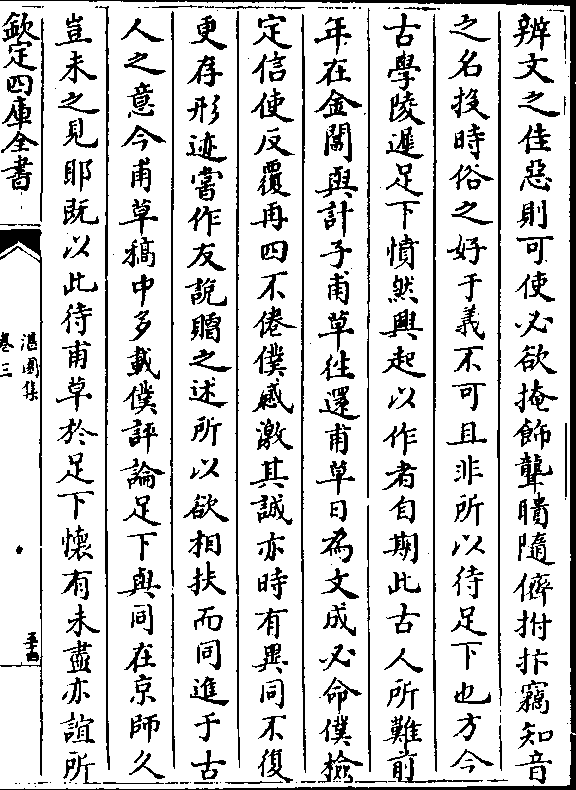 辨文之佳惡則可使必欲掩飾聾聵隨儕拊抃竊知音
之名投時俗之好于義不可且非所以待足下也方今
古學陵遲足下憤然興起以作者自期此古人所難前
年在金閶與計子甫草往還甫草日為文成必命僕檢
定信使反覆再四不倦僕感激其誠亦時有異同不復
更存形迹嘗作友說贈之述所以欲相扶而同進于古
人之意今甫草稿中多載僕評論足下與同在京師久
豈未之見耶既以此待甫草於足下懷有未盡亦誼所
欽定四庫全書
湛園集
卷三
五十四